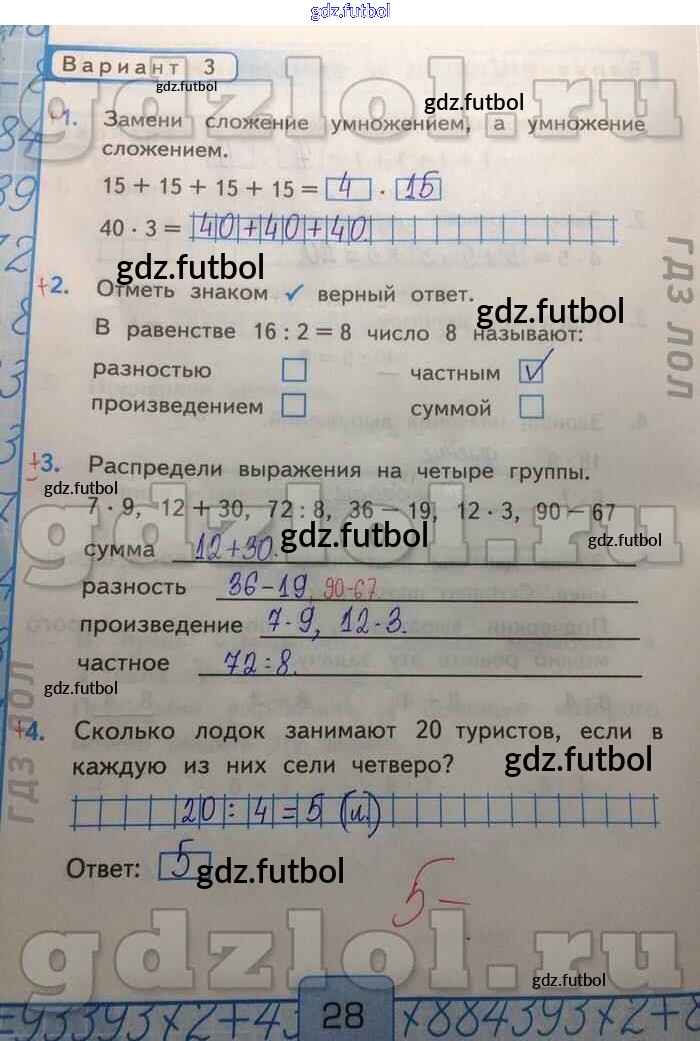 gdz.futbol
Вариант 3
gdz.futbol
gdz.futbol
gdzlol.ru
+1. Замени сложение умножением, а умножение
сложением.
15 + 15 + 15 + 15 = 4 · 15
40 · 3 = 40+40+40.
gdz.futbol
ГДЗ ЛОЛ
+2. Отметь знаком ✓ верный ответ.
gdz.futbol
В равенстве 16 : 2 = 8 число 8 называют:
разностью □ частным ☑
произведением □ суммой □
+3. Распредели выражения на четыре группы.
gdz.futbol
7 · 9, 12 + 30, 72 : 8, 36 – 19, 12 · 3, 90 – 67
gdzlol.ru
сумма 12+30.
gdz.futbol
gdz.futbol
разность 36-19, 90-67.
произведение 7·9, 12·3.
частное 72:8.
gdz.futbol
ГДЗ ЛОЛ
+4. Сколько лодок занимают 20 туристов, если в
каждую из них сели четверо?
gdz.futbol
20 : 4 = 5 (л.)
Ответ: 5
gdz.futbol
5-
gdzlol.ru
gdz.futbol
=93393×2+43
28
×884393×2+8
gdz.futbol